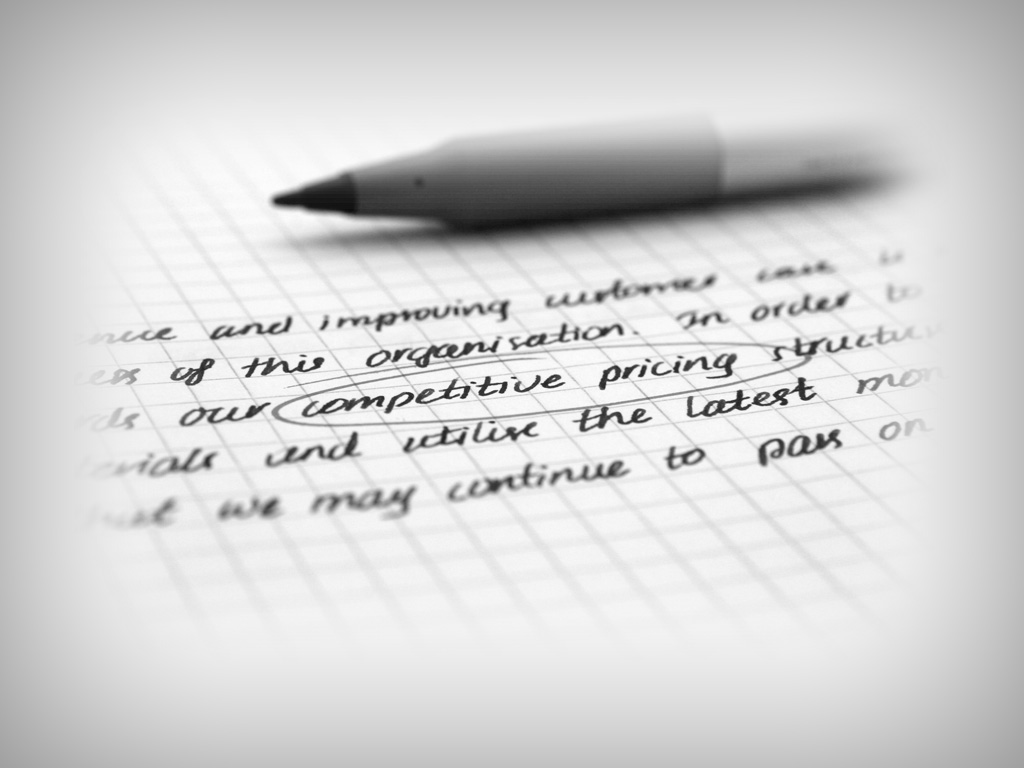 and improving customer care is
of this organisation. In order to
our competitive pricing structu
and utilise the latest
we may continue to pass on